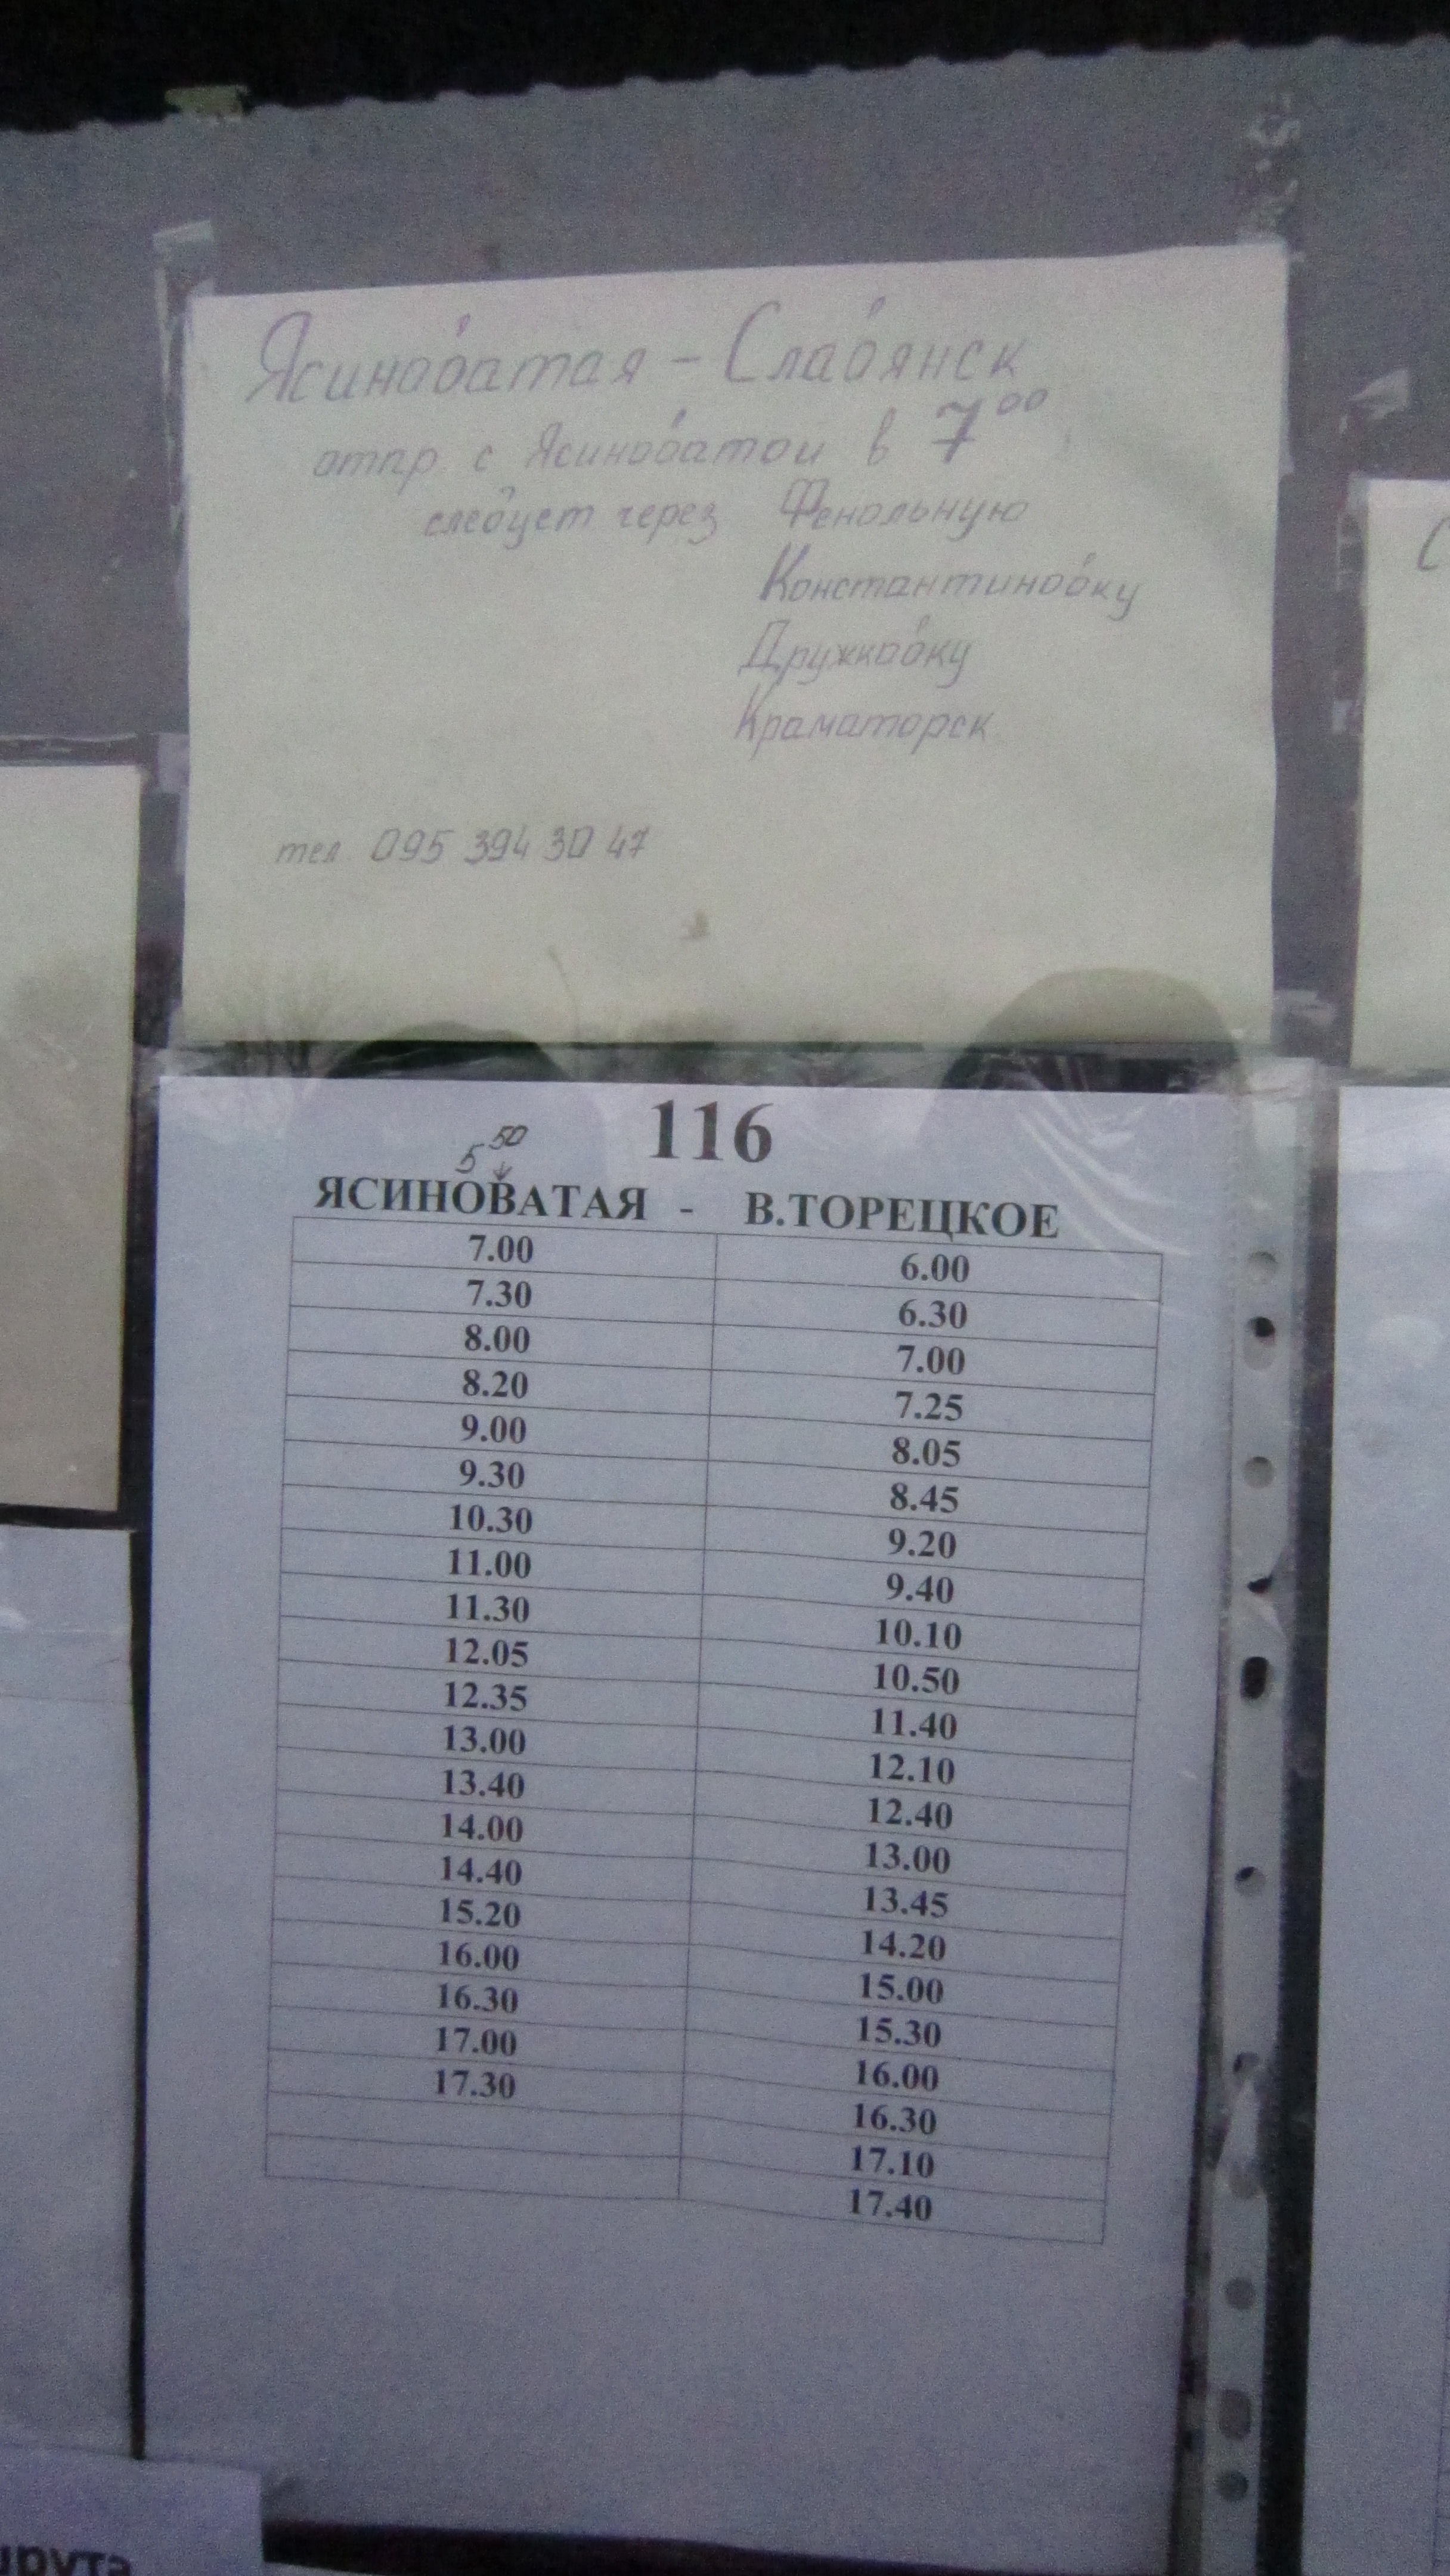 Ясиноватая - Славянск
отпр с Ясиноватой в 7⁰⁰
следует через Фенольную
Константиновку
Дружковку
Краматорск
тел. 095 394 30 47
С
116
5⁵⁰
ЯСИНОВАТАЯ - В.ТОРЕЦКОЕ
7.00 6.00
7.30 6.30
8.00 7.00
8.20 7.25
9.00 8.05
9.30 8.45
10.30 9.20
11.00 9.40
11.30 10.10
12.05 10.50
12.35 11.40
13.00 12.10
13.40 12.40
14.00 13.00
14.40 13.45
15.20 14.20
16.00 15.00
16.30 15.30
17.00 16.00
17.30 16.30
17.10
17.40